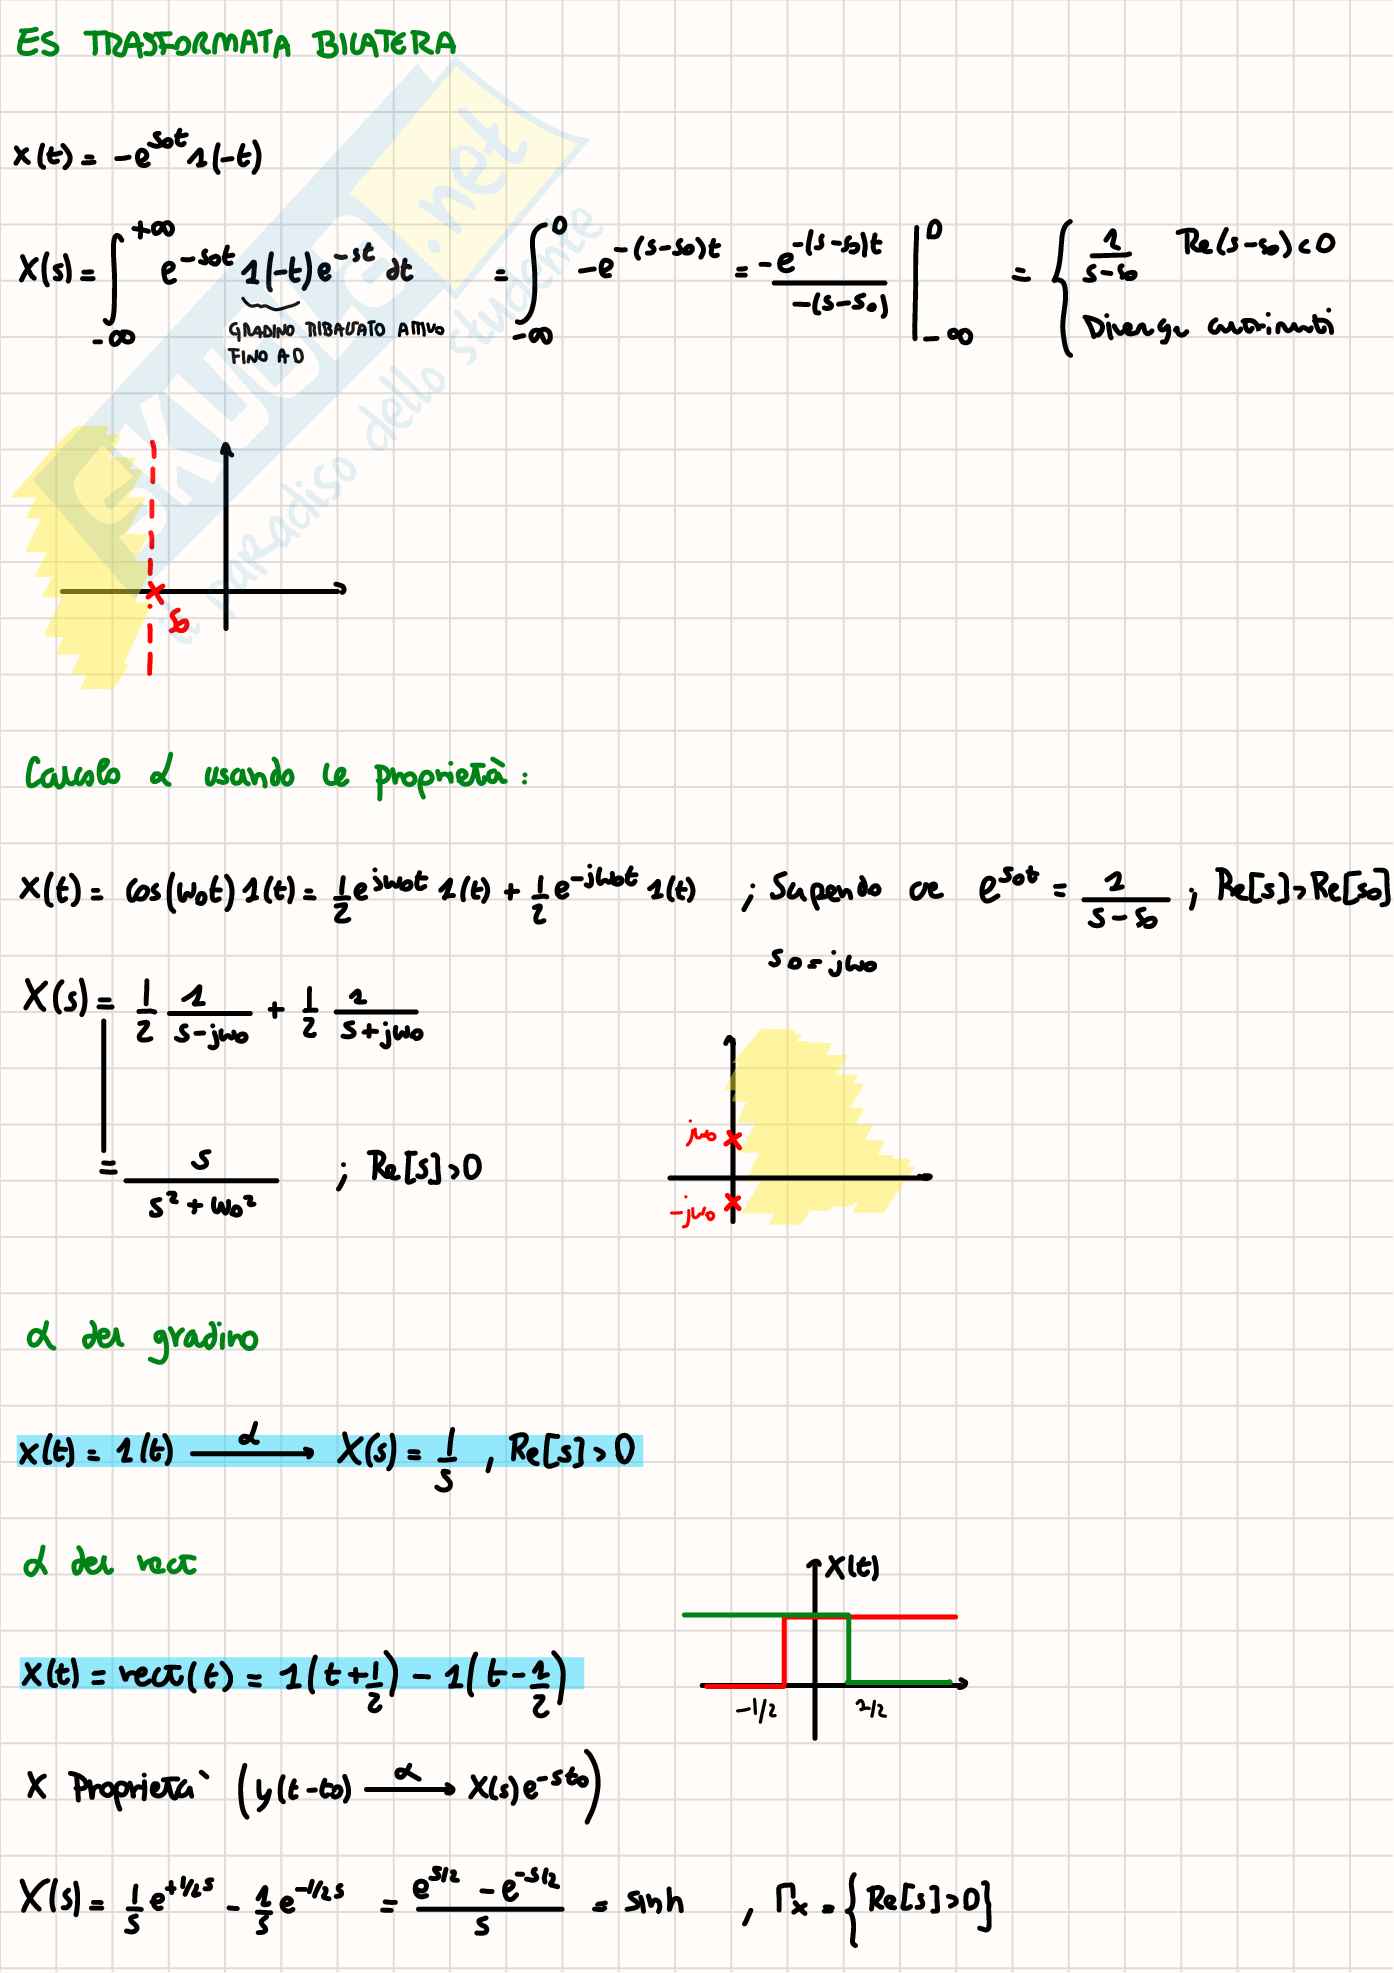 ES TRASFORMATA BILATERA
x(t) = -e^{s₀t} 1(-t)
X(s) = ∫_{-∞}^{+∞} e^{-s₀t} 1(-t) e^{-st} dt = ∫_{-∞}^{0} -e^{-(s-s₀)t} = \frac{-e^{-(s-s₀)t}}{-(s-s₀)} |_{-∞}^{0} = { \frac{1}{s-s₀} Re(s-s₀)<0
Diverge altrimenti
GRADINO RIBALTATO ATTIVO
FINO A 0
s₀
Calcolo L usando le proprietà:
x(t) = cos(ω₀t) 1(t) = \frac{1}{2} e^{jω₀t} 1(t) + \frac{1}{2} e^{-jω₀t} 1(t) ; Sapendo ce e^{s₀t} = \frac{1}{s-s₀} ; Re[s]>Re[s₀]
s₀ = jω₀
X(s) = \frac{1}{2} \frac{1}{s-jω₀} + \frac{1}{2} \frac{1}{s+jω₀}
= \frac{s}{s²+ω₀²} ; Re[s]>0
jω₀
-jω₀
L del gradino
x(t) = 1(t) \xrightarrow{L} X(s) = \frac{1}{s} , Re[s]>0
L del rect
X(t)
x(t) = rect(t) = 1(t+\frac{1}{2}) - 1(t-\frac{1}{2})
-1/2 1/2
X Proprietà (y(t-t₀) \xrightarrow{L} X(s)e^{-st₀})
X(s) = \frac{1}{s} e^{+1/2s} - \frac{1}{s} e^{-1/2s} = \frac{e^{s/2} - e^{-s/2}}{s} = sinh , Γx = {Re[s]>0]
SKUOLA.net
il paradiso dello studente